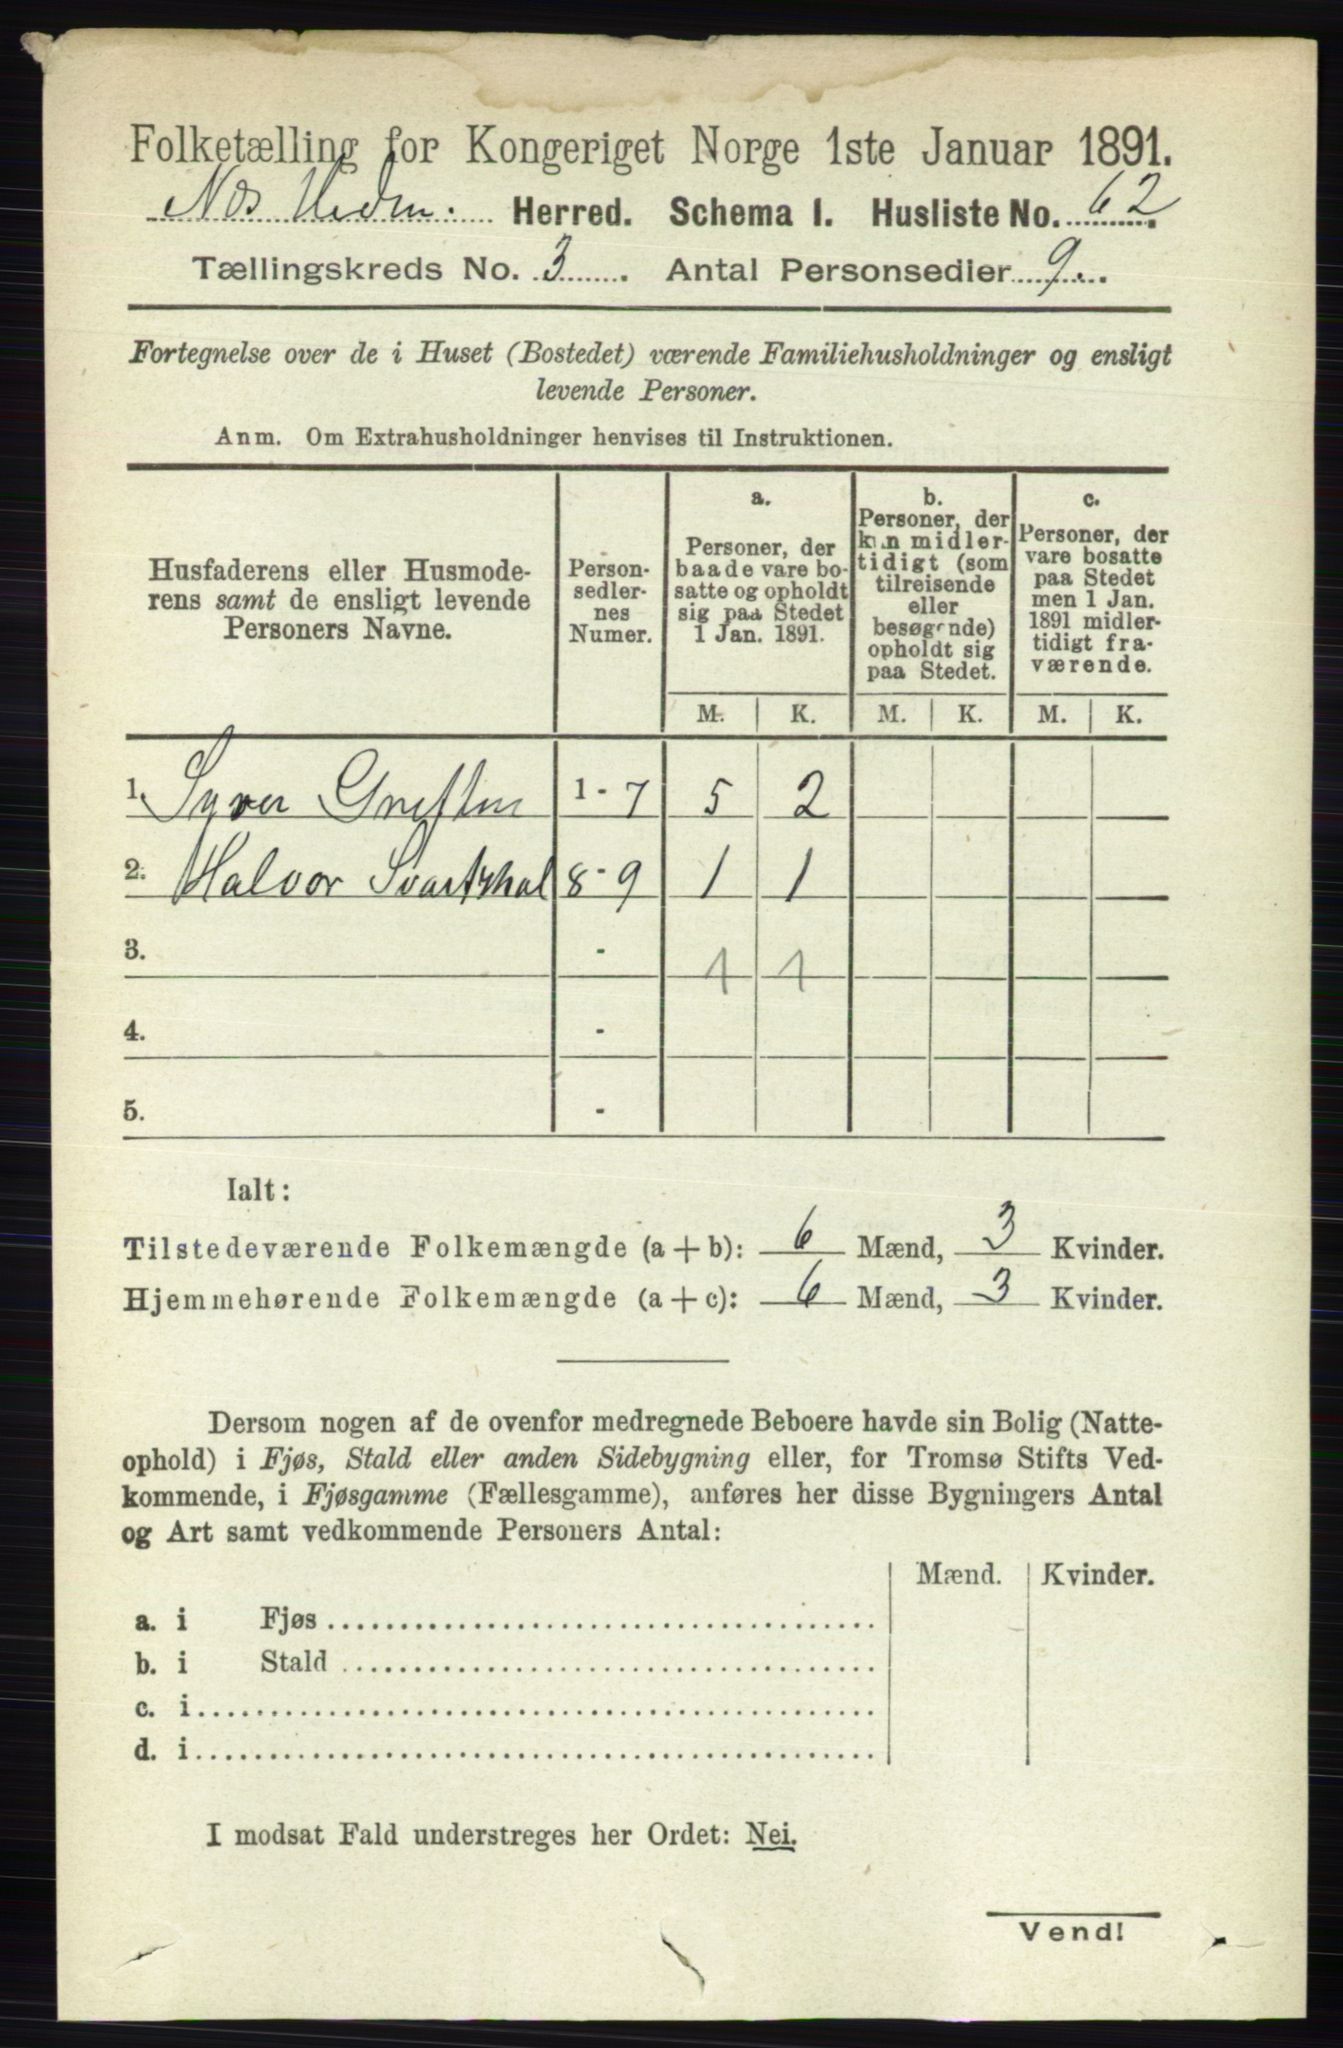 Folketælling for Kongeriget Norge 1ste Januar 1891.
Næs Hedm. Herred. Schema I. Husliste No. 62.
Tællingskreds No. 3. Antal Personsedler 9.
Fortegnelse over de i Huset (Bostedet) værende Familiehusholdninger og ensligt
levende Personer.
Anm. Om Extrahusholdninger henvises til Instruktionen.
Husfaderens eller Husmode-
rens samt de ensligt levende
Personers Navne.
Person-
sedler-
nes
Numer.
a.
Personer, der
baade vare bo-
satte og opholdt
sig paa Stedet
1 Jan. 1891.
b.
Personer, der
kun midler-
tidigt (som
tilreisende
eller
besøgende)
opholdt sig
paa Stedet.
c.
Personer, der
vare bosatte
paa Stedet
men 1 Jan.
1891 midler-
tidigt fra-
værende.
M. K. M. K. M. K.
1. Syver 1 - 7 5 2
2. Halvor 8 - 9 1 1
3. -
4. -
5. -
Ialt:
Tilstedeværende Folkemængde (a + b): 6 Mænd, 3 Kvinder.
Hjemmehørende Folkemængde (a + c): 6 Mænd, 3 Kvinder.
Dersom nogen af de ovenfor medregnede Beboere havde sin Bolig (Natte-
ophold) i Fjøs, Stald eller anden Sidebygning eller, for Tromsø Stifts Ved-
kommende, i Fjøsgamme (Fællesgamme), anføres her disse Bygningers Antal
og Art samt vedkommende Personers Antal:
Mænd. Kvinder.
a. i Fjøs
b. i Stald
c. i
d. i
I modsat Fald understreges her Ordet: Nei.
Vend!